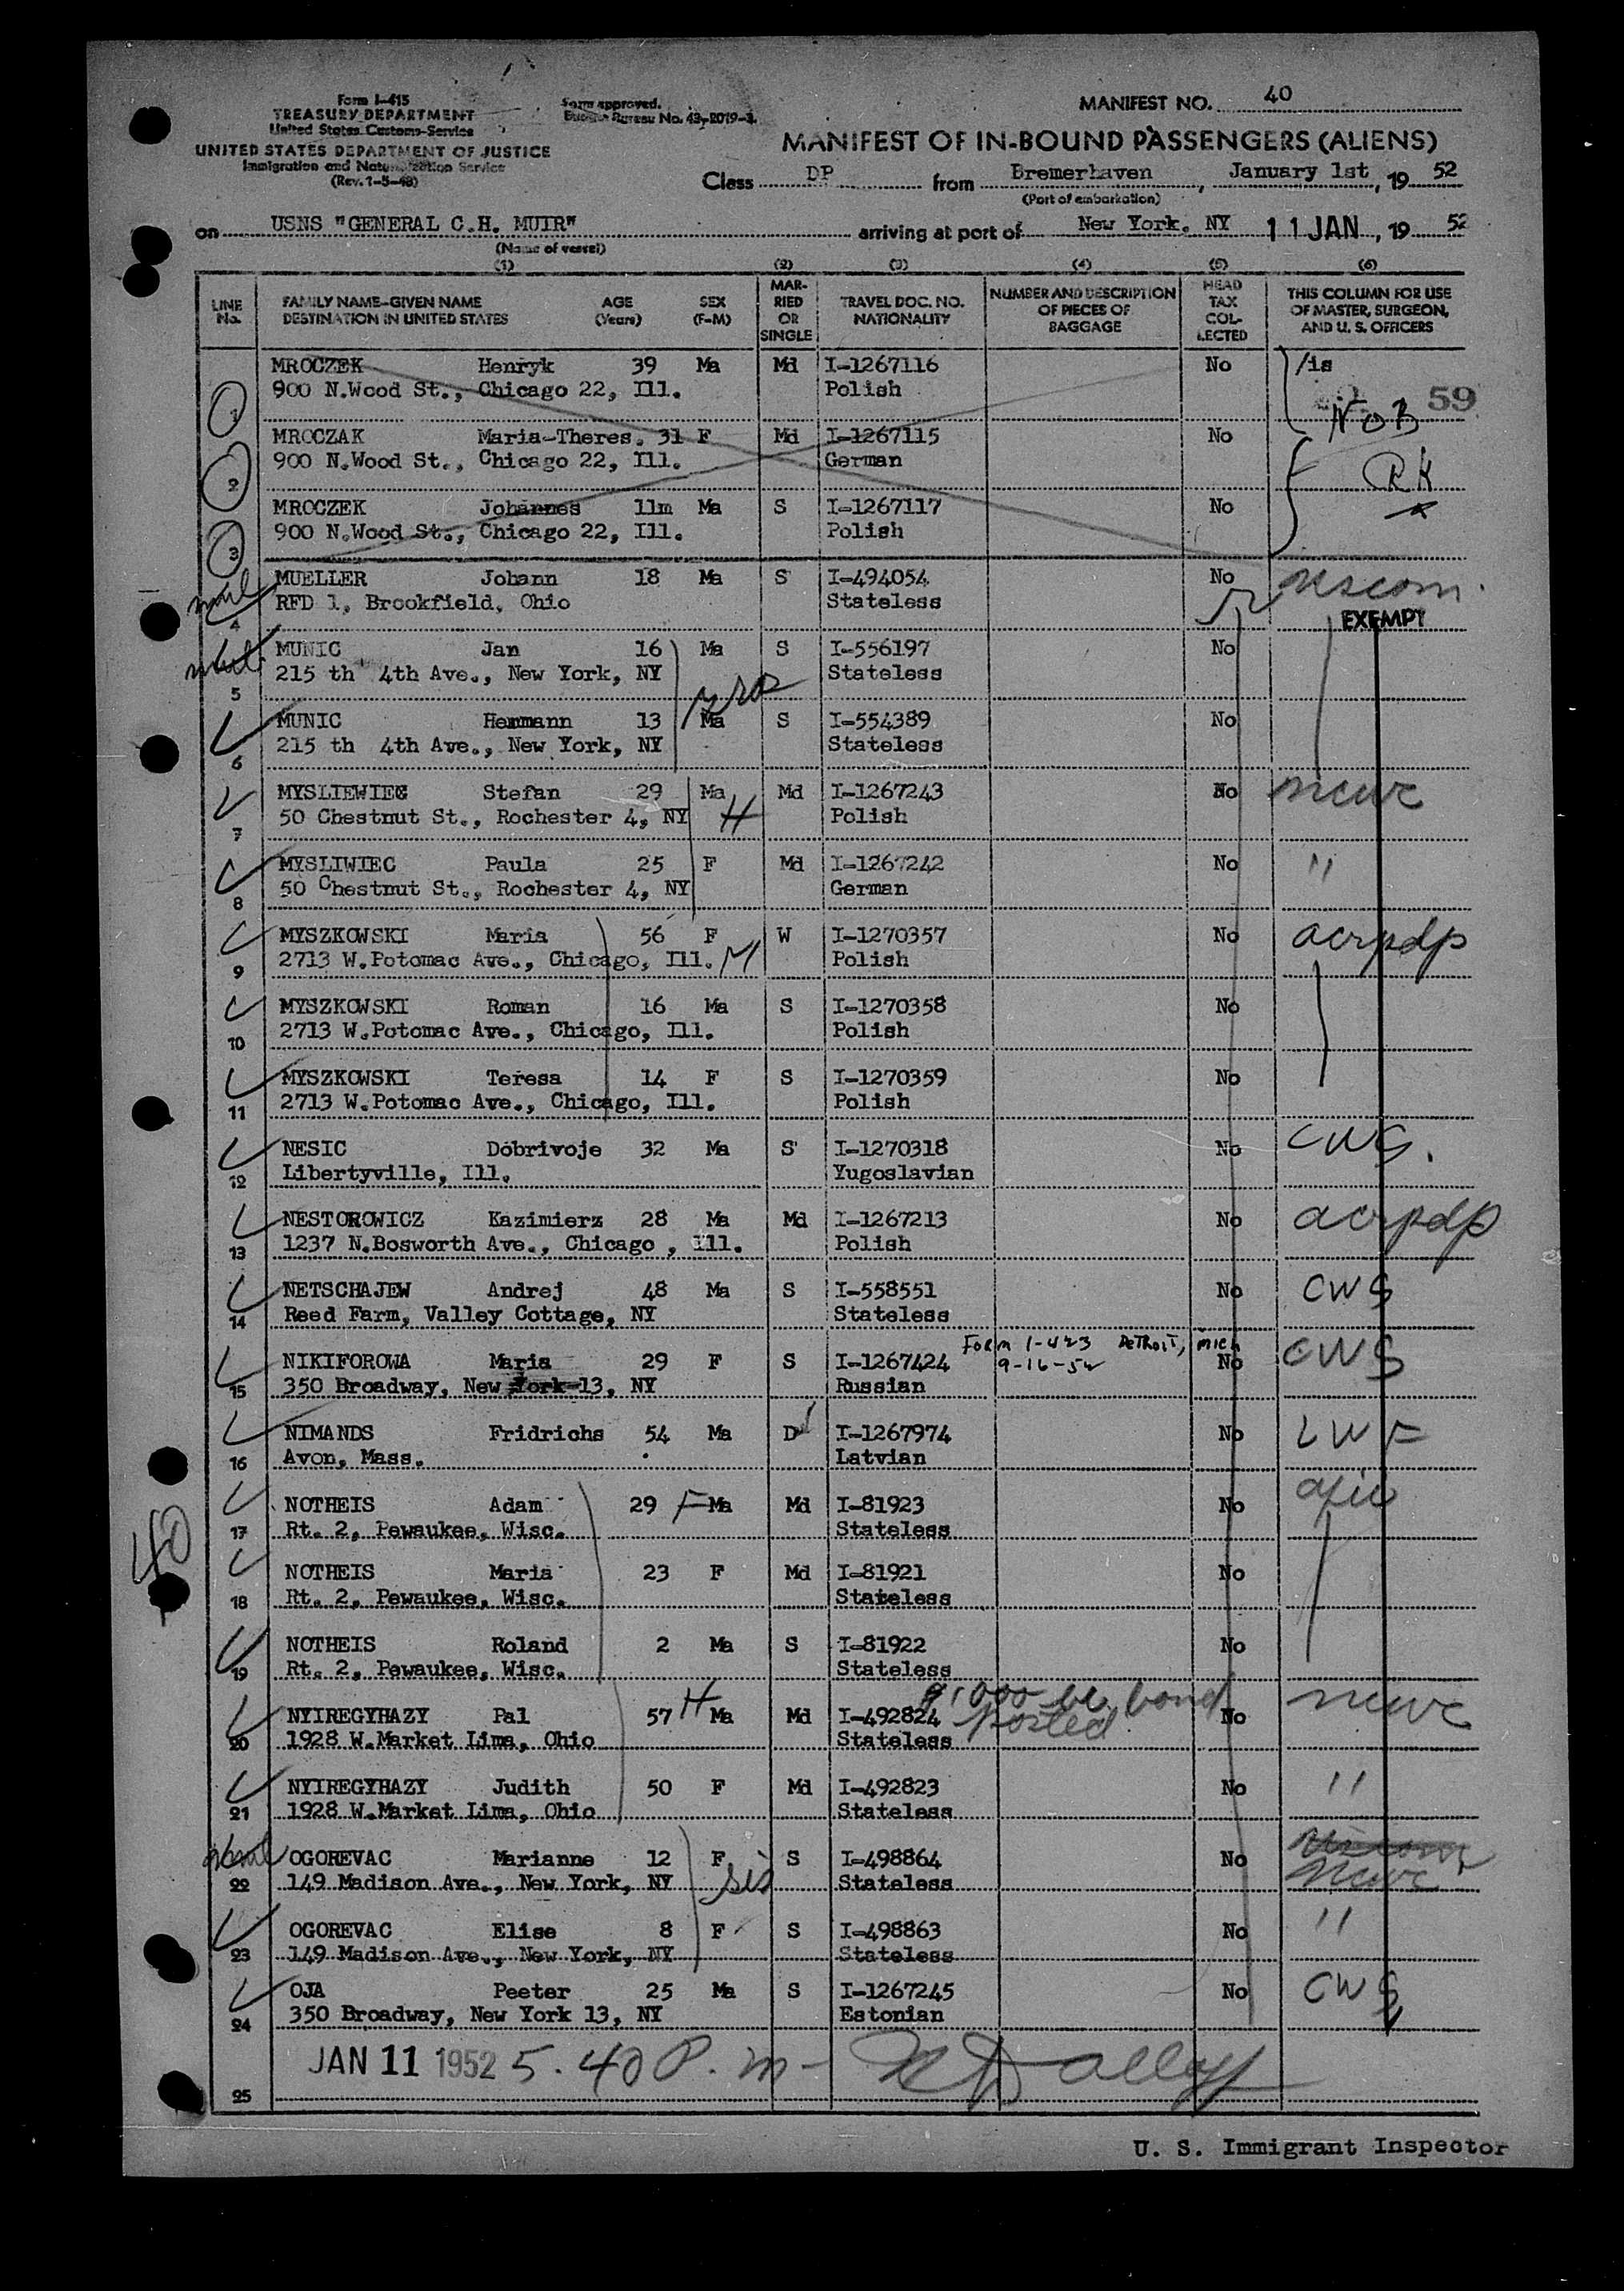 Form I-415
TREASURY DEPARTMENT
United States Customs Service
UNITED STATES DEPARTMENT OF JUSTICE
Immigration and Naturalization Service
(Rev. 1-5-48)
Form approved.
Budget Bureau No. 43-R019-3.
MANIFEST NO. 40
MANIFEST OF IN-BOUND PASSENGERS (ALIENS)
Class DP from Bremerhaven, January 1st, 1952
(Port of embarkation)
on USNS "GENERAL C.H. MUIR" arriving at port of New York, NY 11 JAN, 1952
(Name of vessel)
(1) (2) (3) (4) (5) (6)
LINE No. FAMILY NAME-GIVEN NAME DESTINATION IN UNITED STATES AGE (Years) SEX (F-M) MARRIED OR SINGLE TRAVEL DOC. NO. NATIONALITY NUMBER AND DESCRIPTION OF PIECES OF BAGGAGE HEAD TAX COLLECTED THIS COLUMN FOR USE OF MASTER, SURGEON, AND U. S. OFFICERS
MROCZEK Henryk 39 Ma Md I-1267116 No /is
1 900 N.Wood St., Chicago 22, Ill. Polish 59
NOB
MROCZAK Maria-Theres. 31 F Md I-1267115 No
2 900 N.Wood St., Chicago 22, Ill. German RK
MROCZEK Johannes 11m Ma S I-1267117 No
3 900 N.Wood St., Chicago 22, Ill. Polish
MUELLER Johann 18 Ma S I-494054 No uscom.
4 RFD 1, Brookfield, Ohio Stateless EXEMPT
MUNIC Jan 16 Ma S I-556197 No
5 215 th 4th Ave., New York, NY Stateless
MUNIC Hemmann 13 Ma S I-554389 No
6 215 th 4th Ave., New York, NY Stateless
MYSLIEWIEC Stefan 29 Ma Md I-1267243 No ncwc
7 50 Chestnut St., Rochester 4, NY H Polish
MYSLIWIEC Paula 25 F Md I-1267242 No "
8 50 Chestnut St., Rochester 4, NY German
MYSZKOWSKI Maria 56 F W I-1270357 No acrpdp
9 2713 W.Potomac Ave., Chicago, Ill. M Polish
MYSZKOWSKI Roman 16 Ma S I-1270358 No
10 2713 W.Potomac Ave., Chicago, Ill. Polish
MYSZKOWSKI Teresa 14 F S I-1270359 No
11 2713 W.Potomac Ave., Chicago, Ill. Polish
NESIC Dobrivoje 32 Ma S I-1270318 No CWS.
12 Libertyville, Ill. Yugoslavian
NESTOROWICZ Kazimierz 28 Ma Md I-1267213 No acrpdp
13 1237 N.Bosworth Ave., Chicago , Ill. Polish
NETSCHAJEW Andrej 48 Ma S I-558551 No CWS
14 Reed Farm, Valley Cottage, NY Stateless
Form 1-423 Detroit, Mich
NIKIFOROWA Maria 29 F S I-1267424 9-16-52 No CWS
15 350 Broadway, New York 13, NY Russian
NIMANDS Fridrichs 54 Ma D I-1267974 No LWF
16 Avon, Mass. Latvian
NOTHEIS Adam 29 F Ma Md I-81923 No
17 Rt. 2, Pewaukee, Wisc. Stateless
40
NOTHEIS Maria 23 F Md I-81921 No
18 Rt. 2, Pewaukee, Wisc. Stateless
NOTHEIS Roland 2 Ma S I-81922 No
19 Rt. 2, Pewaukee, Wisc. Stateless
NYIREGYHAZY Pal 57 H Ma Md I-492824 bond posted No ncwc
20 1928 W.Market Lima, Ohio Stateless
NYIREGYHAZY Judith 50 F Md I-492823 No "
21 1928 W.Market Lima, Ohio Stateless
OGOREVAC Marianne 12 F S I-498864 No ncwc
22 149 Madison Ave., New York, NY sis Stateless
OGOREVAC Elise 8 F S I-498863 No "
23 149 Madison Ave., New York, NY Stateless
OJA Peeter 25 Ma S I-1267245 No CWS
24 350 Broadway, New York 13, NY Estonian
25 JAN 11 1952 5.40 P.m-
U. S. Immigrant Inspector